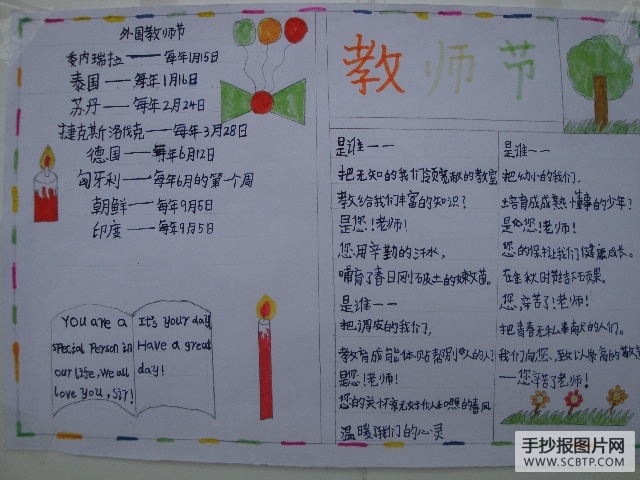 外国教师节
委内瑞拉——每年1月15日
泰国——每年1月16日
苏丹——每年2月24日
捷克斯洛伐克——每年3月28日
德国——每年6月12日
匈牙利——每年6月的第一个周
朝鲜——每年9月5日
印度——每年9月5日
You are a
special Person in
our life, We all
love you, Sir!
It's your day
Have a great
day!
教师节
是谁——
把无知的我们领到宽敞的教室
教给我们丰富的知识?
是您!老师!
您用辛勤的汗水,
哺育了春日刚破土的嫩苗。
是谁——
把调皮的我们,
教育成能体贴帮别人的人?
是您!老师!
您的关怀
和煦的春风
温暖了我们的心灵
是谁——
把幼小的我们,
培育成成熟懂事的少年?
是您!老师!
您的保护让我们健康成长。
在金秋时节结下硕果。
您,辛苦了!老师!
把青春无私奉献的人们。
我们向您,致以崇高的敬意
——您辛苦了老师!
手抄报图片网
WWW.SCBTP.COM